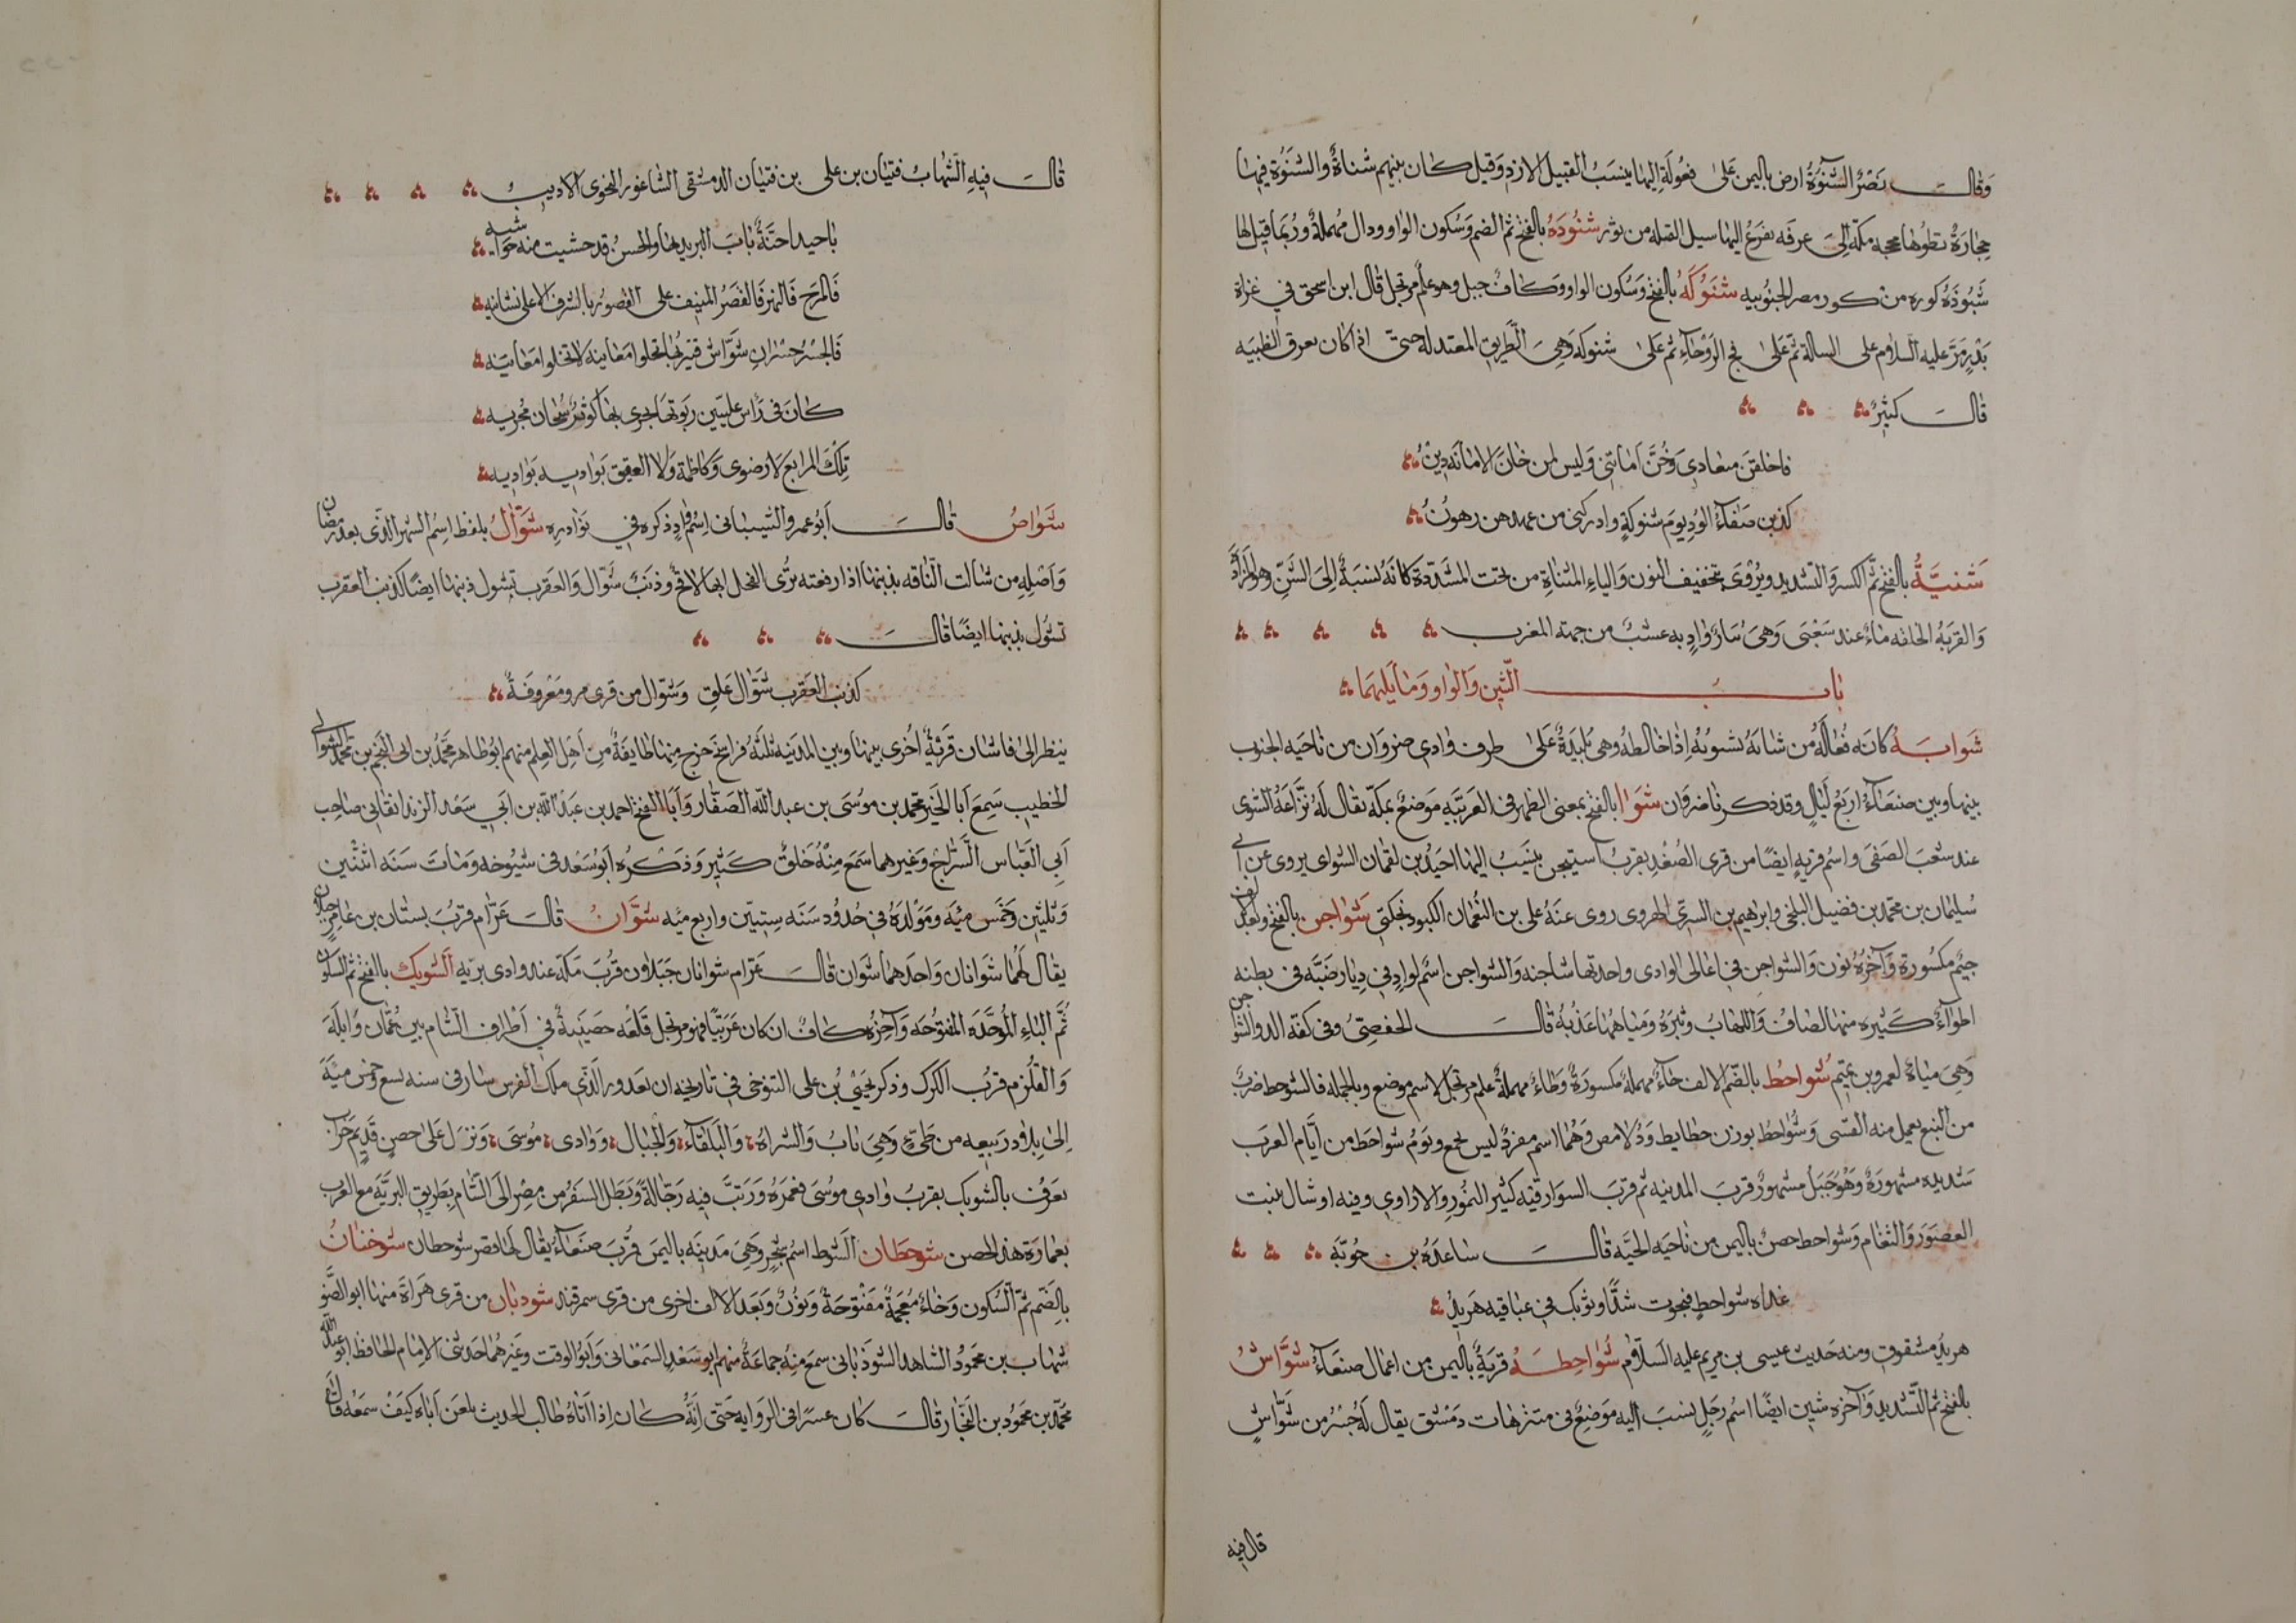 وقال نصر الشنوءة ارض باليمن على فعولة اليها ينسب القبيل الازد وقيل كان بينهم شناة والشنوة فيها
حجارة تطوها محجة مكة الى عرفه يفرع اليها سيل الصله من ثور شنوده بالفتح ثم الضم وسكون الواو ودال مهملة وربما قيل لها
شبوذه كوره من كور مصر الجنوبيه شنوكة بالفتح وسكون الواو وكاف جبل وهو علم مرتجل قال ابن اسحق في غزاة
بدر مر عليه السلام على السيالة ثم على فج الروحآء ثم على شنوكه وهى الطريق المعتدلة حتى اذا كان بعرق الظبيه
قال كثير
فاخلفن ميعادي وخن امانتي وليس لمن خان الامانه دين
كذبن صفآء الود يوم شنوكة وادركنى من عهدهن رهون
شنية بالفتح ثم الكسر والتشديد ويروى بتخفيف النون والياء المثناة من تحت المشددة كانه نسبة الى الشن وهو المزادة
والقربه الخلقه ماء عند شعبى وهى واد به عشب من جهته المغرب
باب الشين والواو وما يليهما
شوابة كانه فعالة من شابه يشوبه اذا خالطه وهى بليدة على طرف وادى ضروان من ناحيه الجنوب
بينها وبين صنعآء اربع ليال وقد ذكر ناضروان شوا بالفتح بمعنى الظهر فى العربيه موضع بمكة يقال له نزاعة الشوى
عند شعب الصفى واسم قريه ايضا من قرى الصغد بقرب استيجن ينسب اليها احيد بن لقمان الشواى يروى عن ابي
سليمان بن محمد بن فضيل البلخى وابراهيم بن السري الهروى روى عنه على بن النعمان الكبوذنجكثي شواجن بالفتح وبعد الف
جيم مكسورة وآخره نون والشواجن في اعالى الوادى واحدتها شاجنه والشواجن اسم لواد في ديار ضبة فى بطنه
اطوآء كثيره منها لصاف واللهاب وثبرة ومياهها عذبة قال الحفصى وفى كفة الدو الشواجن
وهي مياه لعمرو بن تميم شواحط بالضم الالف حآء مهملة مكسورة وطآء مهملة علم مرتجل لاسم موضع وبالجملة فالشوحط ضرب
من النبع يعمل منه القسى وشواحط بوزن حطايط ودلامص وهما اسم مفرد ليس بجمع ويوم شواحط من ايام العرب
شديده مشهورة وهو جبل مشهور قرب المدينه ثم قرب السوارقيه كثير النمور والاراوي وفيه اوشال ينبت
الغضور والثغام وشواحط حصن باليمن من ناحيه الحيه قال ساعده بن جوية
غداه شواحط فنجوت شدا وثوبك في عباقيه هريد
هريد مشقوق ومنه حديث عيسى بن مريم عليه السلام شواحطة قرية باليمن من اعمال صنعآء شواش
بالفتح ثم التشديد وآخره شين ايضا اسم رجل ينسب اليه موضع فى متنزهات دمشق يقال له جسر من شواش
قال فيه
قال فيه الشهاب فتيان بن على بن فتيان الدمشقى الشاغور النحوى الاديب
يا حبذا جنة باب البريد بها والحسن قد حشيت منه حواشيه
فالمرج فالنهر فالقصر المنيف على القصور بالشرف الاعلى نشانيه
فالجسر جسر ان شواش فنيربها تحلوا معانيه لا تخلوا معانيه
كان فى راس عليين ربوتها جرى بها كوثر سبحان مجريه
تلك المرابع لا رضوى وكاظمة ولا العقيق بواديه بواديه
شواص قال ابو عمرو الشيبانى اسم واد ذكره في نوادره شوال بلفظ اسم الشهر الذى بعد رمضان
واصله من شالت الناقه بذنبها اذا رفعته ترى الفحل انها لاقح وذنب شوال والعقرب تشول ذنبها ايضا كذنب العقرب
تشول بذنبها ايضا قال
كذنب العقرب شوال علق وشوال من قرى مرو معروفة
ينظر الى فاشان قرية اخرى بينها وبين المدينه ثلثه فراسخ خرج منها طايفة من اهل العلم منهم ابو طاهر محمد بن ابى النجم بن محمد الشوالى
الخطيب سمع ابا الخير محمد بن موسى بن عبد الله الصفار وابا الفتح احمد بن عبد الله بن ابي سعد الزندانقانى صاحب
ابي العباس السراج وغيرهما سمع منه خلق كثير وذكره ابو سعد فى شيوخه ومات سنه اثنتين
وثلثين وخمس مئه ومولده في حدود سنه ستين واربع مئه شوان قال عرام قرب بستان بن عامر جبلان
يقال لهما شوانان واحدهما شوان قال عرام شوانان جبلان قرب مكة عند وادى تربه الشوبك بالفتح ثم السكون
ثم الباء الموحده المفتوحه وآخره كاف ان كان عربيا فهو مرتجل قلعه حصينة في اطراف الشام بين عمان وايلة
والقلزم قرب الكرك وذكر يحيى بن على التنوخى في تاريخه ان بغدور الذي ملك الفرس سار فى سنه تسع وخمس مئة
الى بلاد ربيعه من طىء وهى باب والشراه والبلقآء والجبال ووادى موسى ونزل على حصن قديم خراب
يعرف بالشوبك بقرب وادي موسى فعمره ورتب فيه رجالة وبطل السفر من مصر الى الشام بطريق البرية مع العرب
بعمارة هذا الحصن شوحطان الشوط اسم شجر وهى مدينه باليمن قرب صنعآء يقال لها قصر شوحطان شوخنان
بالضم ثم السكون وخاء معجمة مفتوحة ونون وبعد الالف اخرى من قرى سمرقند شوذبان من قرى هراة منها ابو الضو
شهاب بن محمود الشاهد الشوذبانى سمع منه جماعة منهم ابو سعد السمعانى وابو الوقت وغيرهما حدثنى الامام الحافظ ابو عبد الله
محمد بن محمود بن النجار قال كان عسرا فى الروايه حتى انه كان اذا اتاه طالب الحديث يلعن اباه كيف سمعه قال